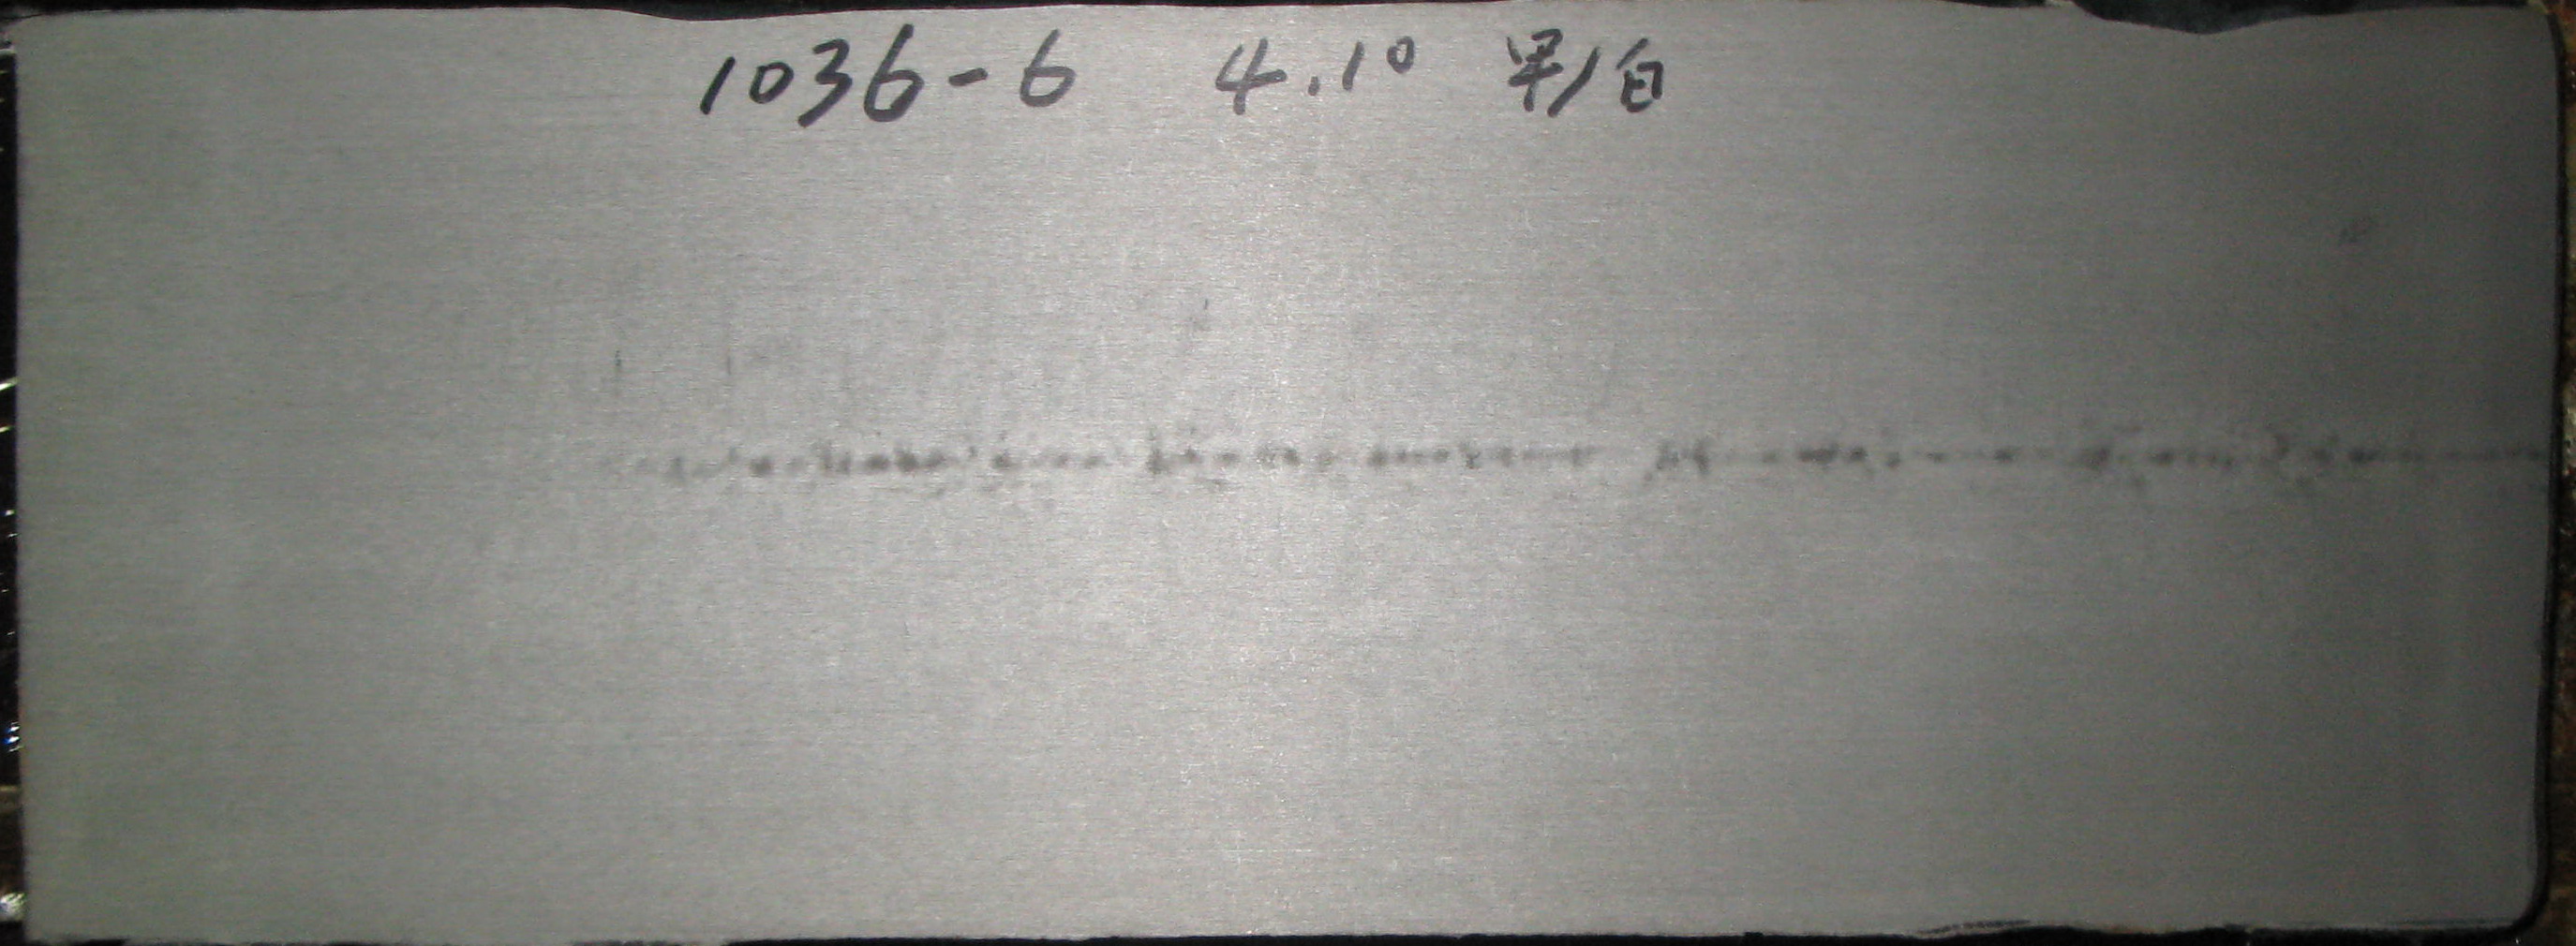 1036-6 4.10 早/白